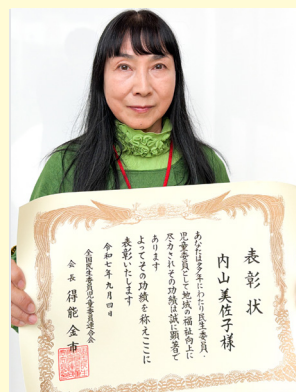 表彰状
内山美佐子様
あなたは多年にわたり民生委員・
児童委員として地域の福祉向上に
尽力されその功績は誠に顕著で
あります
よってその功績を称えここに
表彰いたします
令和七年九月四日
全国民生委員児童委員連合会
会長 得能金市